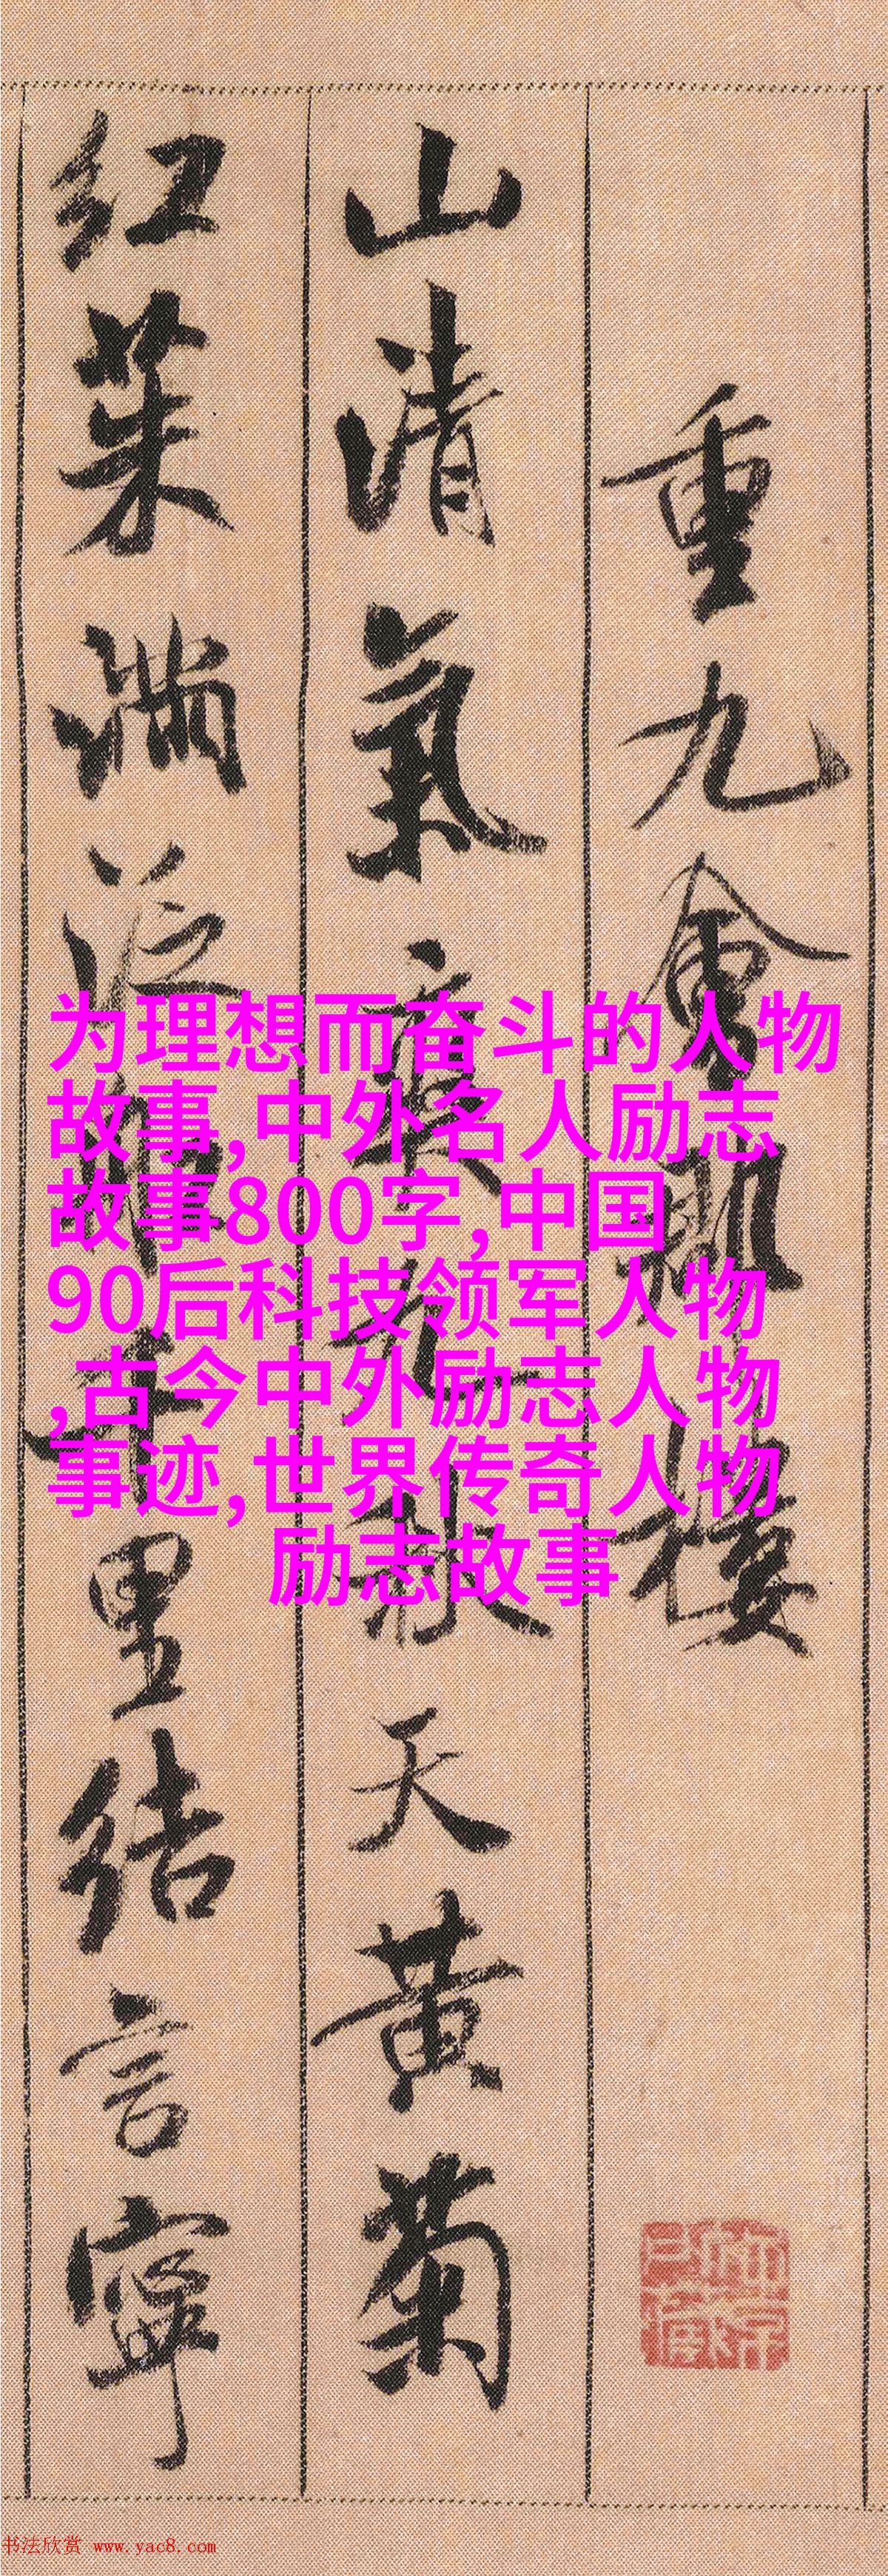 重九會郡樓
山清氣爽九秋天黃菊
紅茱滿泛船千里結言寧
为理想而奋斗的人物
故事,中外名人励志
故事800字,中国
90后科技领军人物
,古今中外励志人物
事迹,世界传奇人物
励志故事
书法欣赏 www.yac8.com